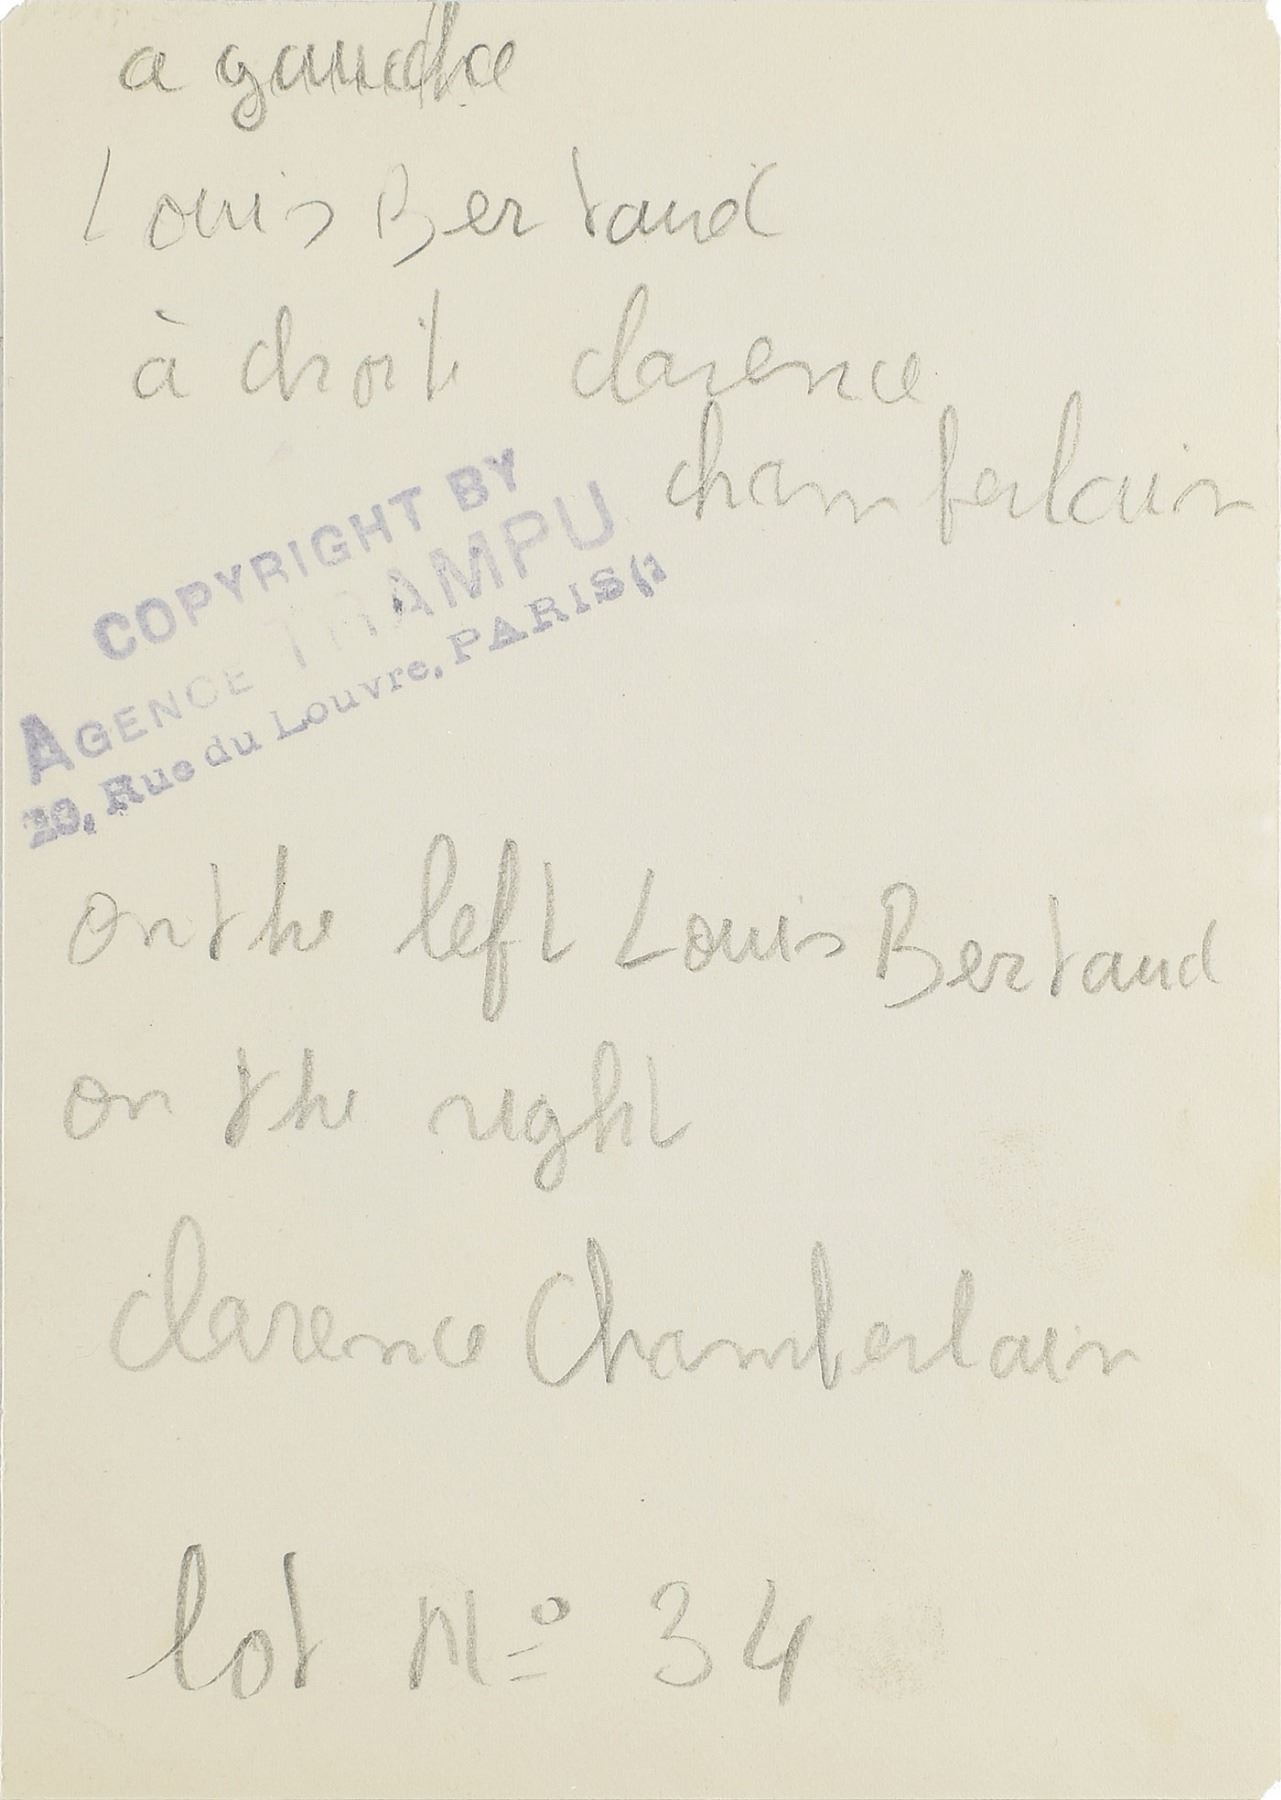 a gauche
Louis Bertaud
à droite clarence
chamberlain
COPYRIGHT BY
AGENCE TRAMPU
20, Rue du Louvre, PARIS
on the left Louis Bertaud
on the right
Clarence Chamberlain
lot No 34